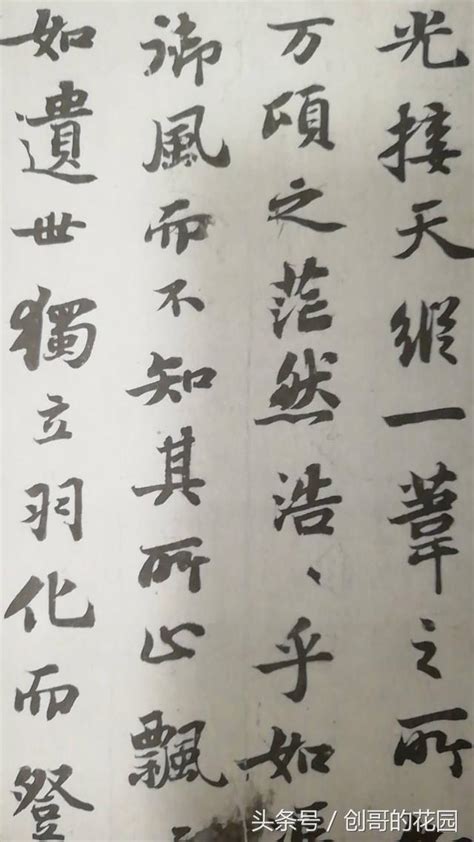 光接天縱一葦之所
万頃之茫然浩、乎如
御風而不知其所止飄、
如遺世獨立羽化而登
头条号 / 创哥的花园